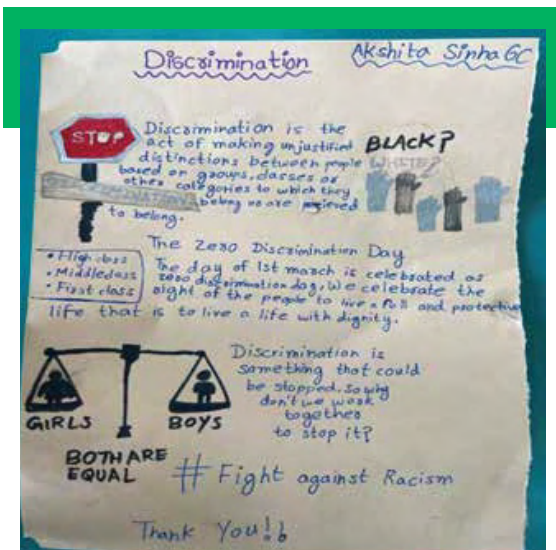 Discrimination
Akshita Sinha GC
STOP
DISCRIMINATION
Discrimination is the
act of making unjustified
distinctions between people
based on groups, classes or
other categories to which they
belong or are
to belong.
BLACK?
WHITE?
• High class
• Middle class
• First class
The Zero Discrimination Day
The day of 1st march is celebrated as
zero discrimination day, we celebrate the
right of the people to live a full and
life that is to live a life with dignity.
GIRLS
BOYS
BOTH ARE
EQUAL
Discrimination is
something that could
be stopped. So why
don't we work
together
to stop it?
# Fight against Racism
Thank You!!